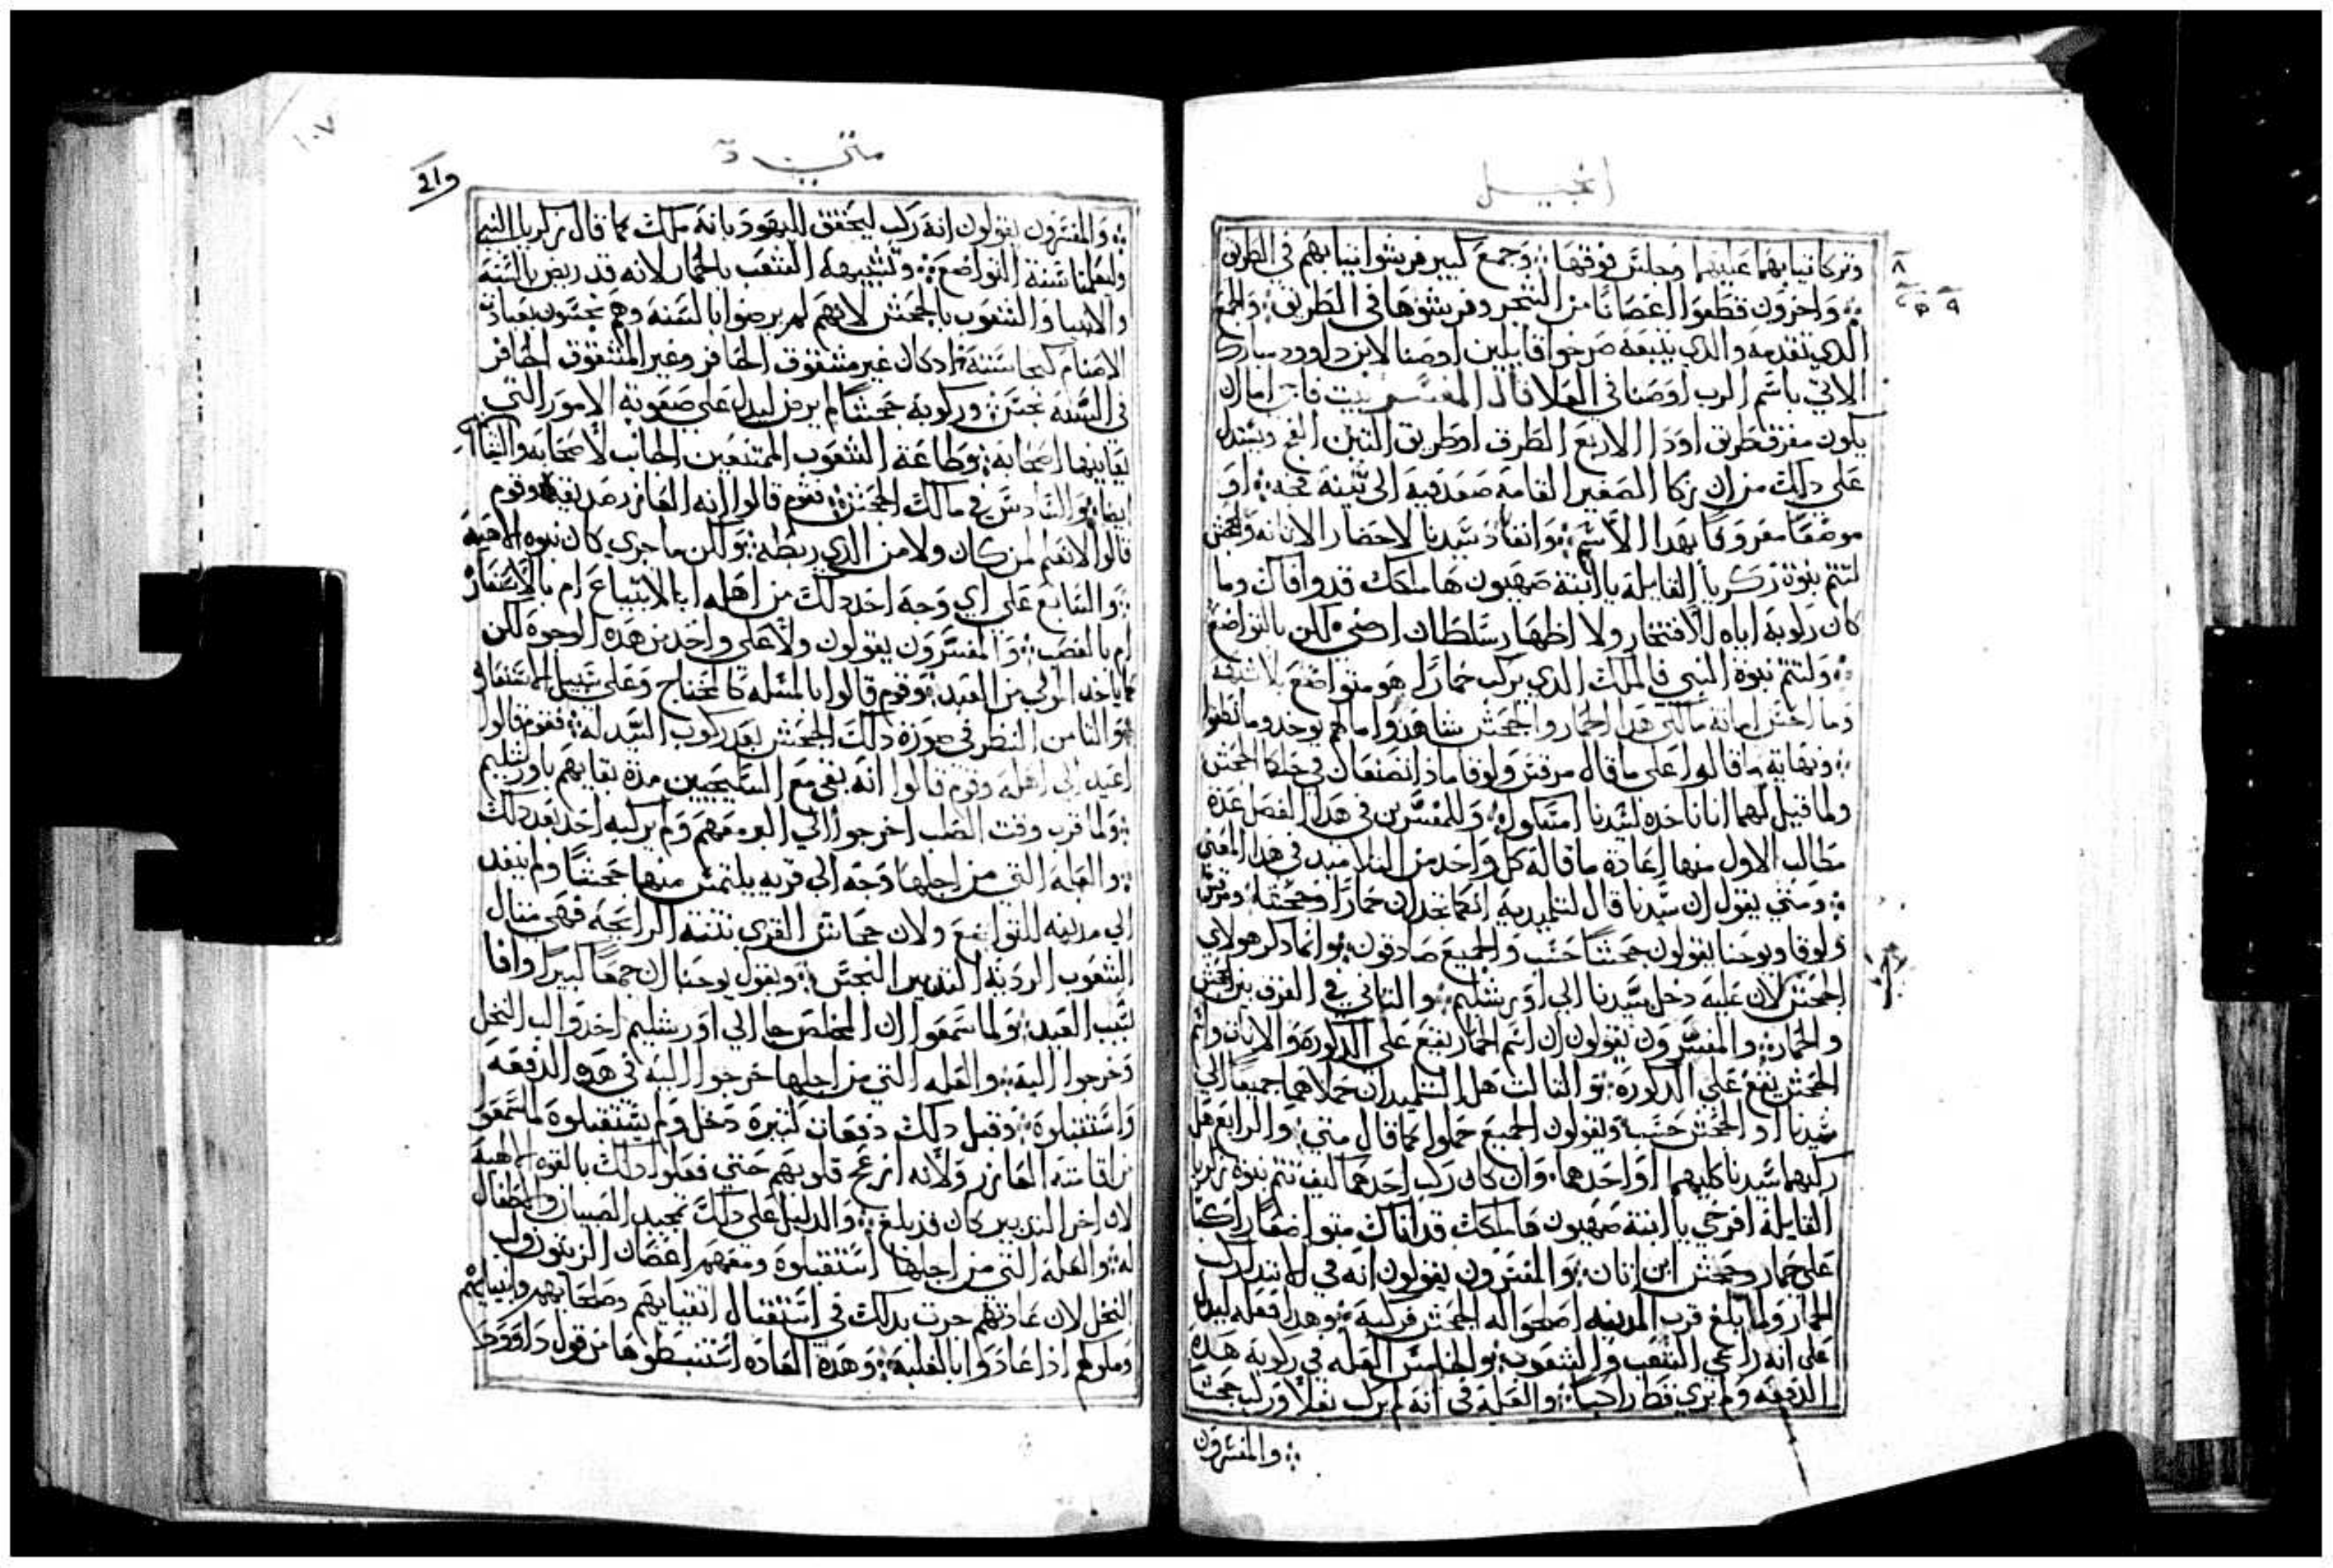 انجيل
وتركا ثيابهما عليهما وجلس فوقها ܀ وجمع كبير فرشوا ثيابهم في الطريق
܀ واخرون قطعوا اغصانا من الشجر وفرشوها في الطريق ܀ والجمع
الدي تقدمه والدي يتبعه صرخوا قايلين اوصنا لابن داوود مبارك
الاتي باسم الرب اوصنا في العلا قال المفسر بيت فاجي اما ان
يكون مفرق طريق اود الاربع الطرق او طريق التين الفج ويستدل
على دلك من ان زكا الصغير القامة صعد فيه الى تينة فجه ܀ او
موضعا معروفا بهدا الاسم ܀ وانفاد سيدنا لاحضار الاتانه والجحش
لتتم نبوة زكريا القايلة يا ابنة صهيون ها ملكك قد وافاك وما
كان ركوبة اياه للافتخار ولا اظهار سلطان ارضي لكن بالتواضع
܀ ولتتم نبوة النبي فالملك الدي يركب حمارا هو متواضع بلا شبهة
وما احسن امانة مالكي هدا الحمار والجحش شاهدوا اما هم يوخد وما نطقوا
܀ ونهاية ما قالوا على ما قال مرقس ولوقا مادا تصنعان في حلكا الجحش
ولما قيل لهما اننا ناخده لسيدنا امسكوا ܀ وللمفسرين في هدا الفصل عدة
مطالب الاول منها اعادة ما قالة كل واحد من التلاميد في هدا المعني
܀ ومتي يقول ان سيدنا قال لتلميديه انكما تجدان حمارا وجحشا ܀ ومرقس
ولوقا ويوحنا يقولون جحشا حسب والجميع صادقون ܀ وانما دكر هولاي
الجحش لان عليه دخل سيدنا الي اورشليم ܀ والتاني في الفرق بين الجحش
والحمار ܀ والمفسرون يقولون ان اسم الحمار يقع على الدكورة والاناث واسم
الجحش يقع على الدكورة ܀ والتالت هل التلميدان حملاهما جميعا الي
سيدنا او الجحش حسب ويقولون الجميع حملوا كما قال متي ܀ والرابع هل
ركبهما سيدنا كليهما او احدها ܀ وان كان ركب احدهما كيف تتم نبوة زكريا
القايلة افرحي يا ابنة صهيون فا ملكك قد اتاك متواضعا راكبا
على حمار وجحش ابن اتان ܀ والمفسرون يقولون انه في الابتدا ركب
الحمار ولما بلغ قرب المدينه اصلحوا له الجحش فركبه ܀ وهدا فعله ليدل
على انه راعي الشعب والشعوب ܀ والخامس العله في ركوبة هده
الدفعه ولم يري قط راكبا ܀ والعلة في انه لم يركب بغلا وركب جحشا
܀ والمفسرون
متي
١٠٧
܀ والمفسرون يقولون انه ركب ليحقق لليهود بانه ملك كما قال زكريا النبي
وليعلمنا سنة التواضع ܀ وتشبيهه الشعب بالحمار لانه قد ريض بالسنة
والانبيا والشعوب بالجحش لانهم لم يرضوا بالسنه وهم نجسون بعبادة
الاصنام كنجاسته اد كان غير مشقوق الحافر وغير المشقوق الحافر
في السنة نجس ܀ وركوبة جحشا لم يرض ليدل على صعوبة الامور التي
يقاسيها اصحابه ܀ وطاعة الشعوب الممتنعين الجانب لاصحابه
ايضا ܀ والسادس في مالك الجحش ܀ فقوم قالوا انه العازر صديقه وقوم
قالوا لا نعلم لمن كان ولا من الدي ربطه ܀ ولكن ما جري كان بقوه الاهية
܀ والسابع على اي وجه اخد دلك من اهله ابالابتياع ام بالاستعارة
ام بالغصب ܀ والمفسرون يقولون ولا على واحد من هده الوجوه لكن
كما ياخد المولي من العبد ܀ وقوم قالوا بالمسله كالمحتاج وعلى سبيل
܀ والتامن النظر في حوزة دلك الجحش بعد ركوب السيد له ܀ فقوم قالوا
اعيد الي اهله وقوم قالوا انه بقي مع السليحيين مدة بقايهم باورشليم
܀ ولما قرب وقت الصلب اخرجوا الي معهم ولم يركبه احد بعد دلك
܀ والعله التي من اجلها وجه الي قريه يلتمس منها جحشا ولم ينفد
الي مدينه للتواضع ولان جحاش القري نتنه الرايحه فهي متال
الشعوب الرديه التدبير النجس ܀ ويقول يوحنا ان جمعا كبيرا وافا
لسبب العيد ܀ ولما سمعوا ان المخلص جا الي اورشليم اخدوا لب النخل
وخرجوا اليه ܀ والعله التي من اجلها خرجوا اليه في هده الدفعه
واستقبلوه ܀ وقبل دلك دفعات كتيرة دخل ولم يستقبلوة لما سمعوا
من اقامته العازر ولانه ازعج قلوبهم حتي فعلوا دلك بالقوه الالهية
لان اخر التدبير كان قد بلغ ܀ والدليل على دلك تمجيد الصبيان والاطفال
له ܀ والعله التي من اجلها استقبلوة ومعهم اغصان الزيتون ولب
النخل لان عادتهم جرت بدلك في استقبال اتقيايهم وصلحايهم وانبيايهم
وملوكهم ادا عادوا بالغلبه ܀ وهدة العاده استنبطوها من قول داوود